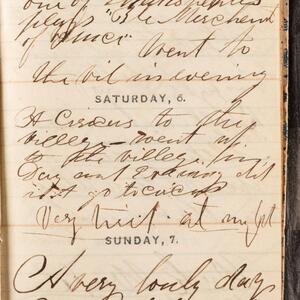 one of
plays "The Merchant
of
Went to
the vil in evening
SATURDAY, 6.
A Circus to the
village - went up
to the village in
Day and evening did
not go to circus
Very hot at night
SUNDAY, 7.
A very lovly day